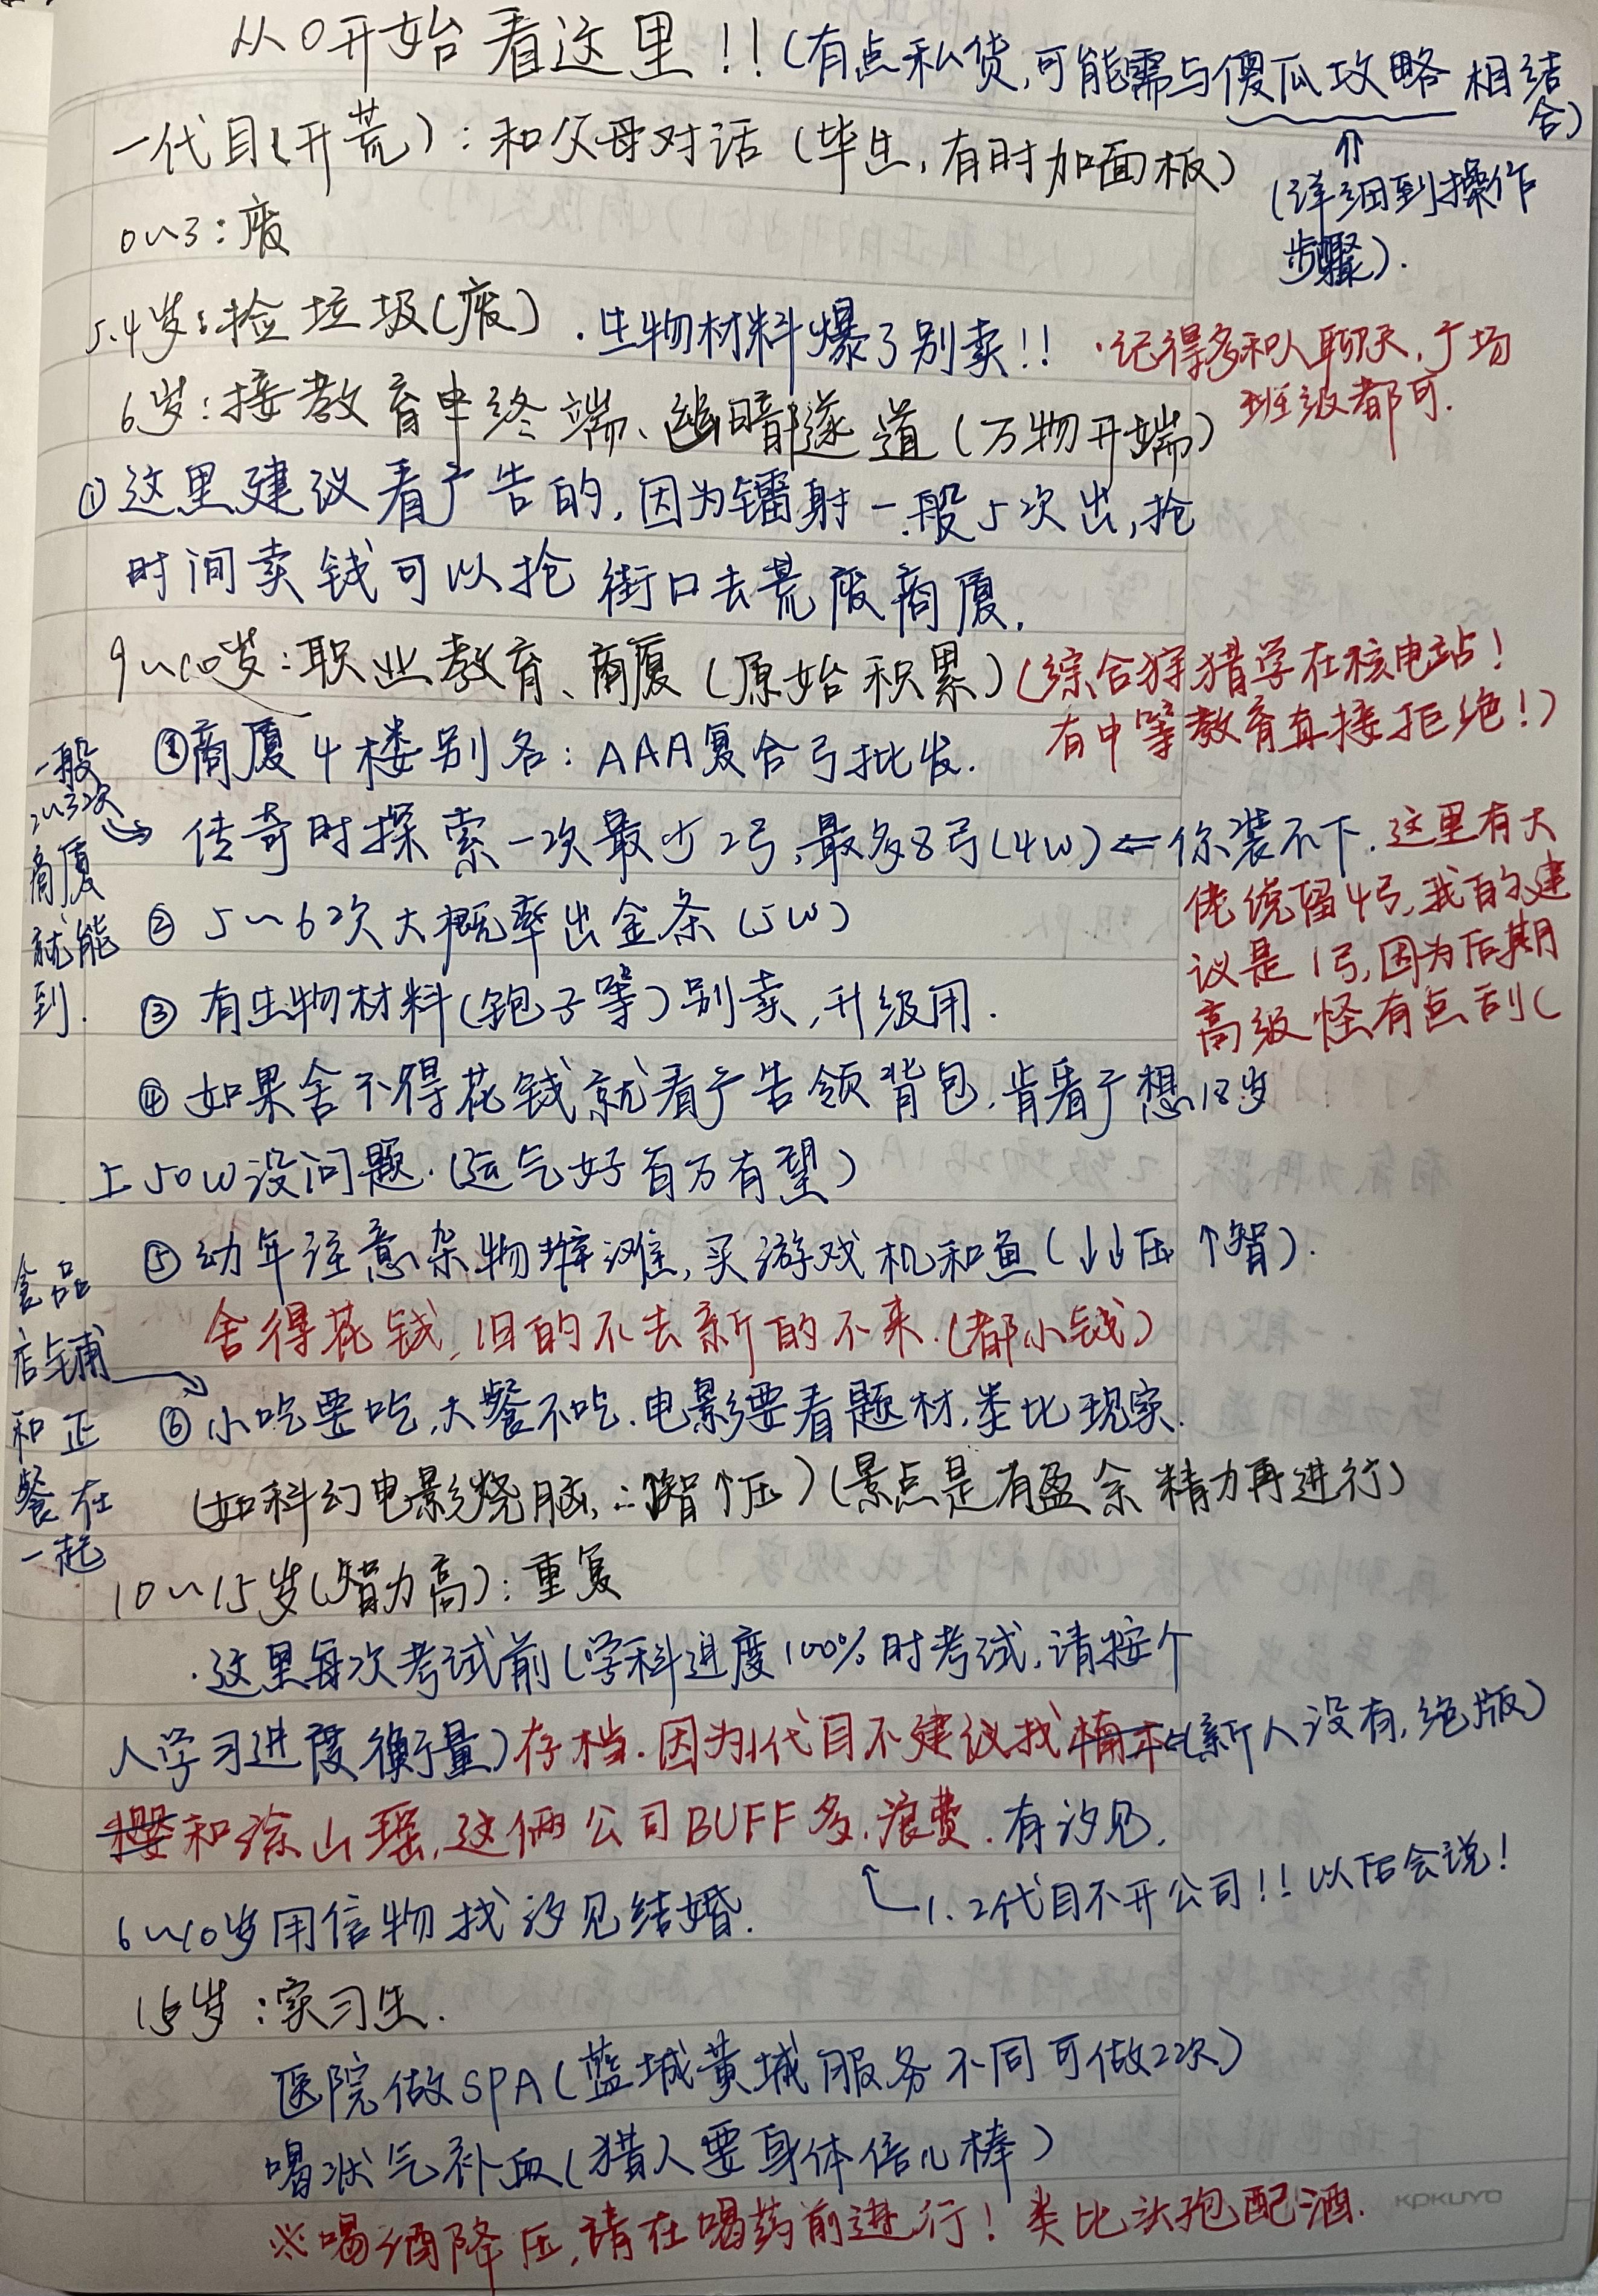 从0开始看这里!!(有点私货,可能需与傻瓜攻略相结合)
⇑
(详细到操作
步骤).
一代目(开荒):和父母对话(毕生,有时加面板)
0~3:废
5.4岁:捡垃圾(废) ·生物材料爆了别卖!! ·记得多和人聊天,广场
班级都可.
6岁:接教育中终端、幽暗隧道(万物开端)
①这里建议看广告的,因为镭射一般5次出,抢
时间卖钱可以抢街口去荒废商厦.
9~10岁:职业教育、商厦(原始积累)(综合狩猎学在核电站!
有中等教育直接拒绝!)
①商厦4楼别名:AAA复合弓批发.
一般
2~3次
商厦
就能
到.
传奇时探索一次最少2弓,最多8弓(4w)⇐你装不下.这里有大
佬统留4弓,我的建
议是1弓,因为后期
高级怪有点刮(
②5~6次大概率出金条(5w)
③有生物材料(孢子等)别卖,升级用.
④如果舍不得花钱就看广告领背包.肯看广想18岁
上50w没问题.(运气好百万有望)
⑤幼年注意杂物摊,买游戏机和鱼(↓↓压↑智).
舍得花钱,旧的不去新的不来.(都小钱)
食品
店铺
和正
餐在
一起
⑥小吃要吃,大餐不吃.电影要看题材,类比现实.
(如科幻电影烧脑,∴↑智↑压)(景点是有盈余精力再进行)
10~15岁(智力高):重复
·这里每次考试前(学科进度100%时考试,请按个
人学习进度衡量)存档.因为1代目不建议找楠木(新人没有,绝版)
樱和涂山瑶,这俩公司BUFF多,浪费.有汐见.
1.2代目不开公司!!以后会说!
6~10岁用信物找汐见结婚.
15岁:实习生.
医院做SPA(蓝城黄城服务不同可做22次)
喝状气补血(猎人要身体倍儿棒)
※喝酒降压,请在喝药前进行!类比头孢配酒.
KOKUYO